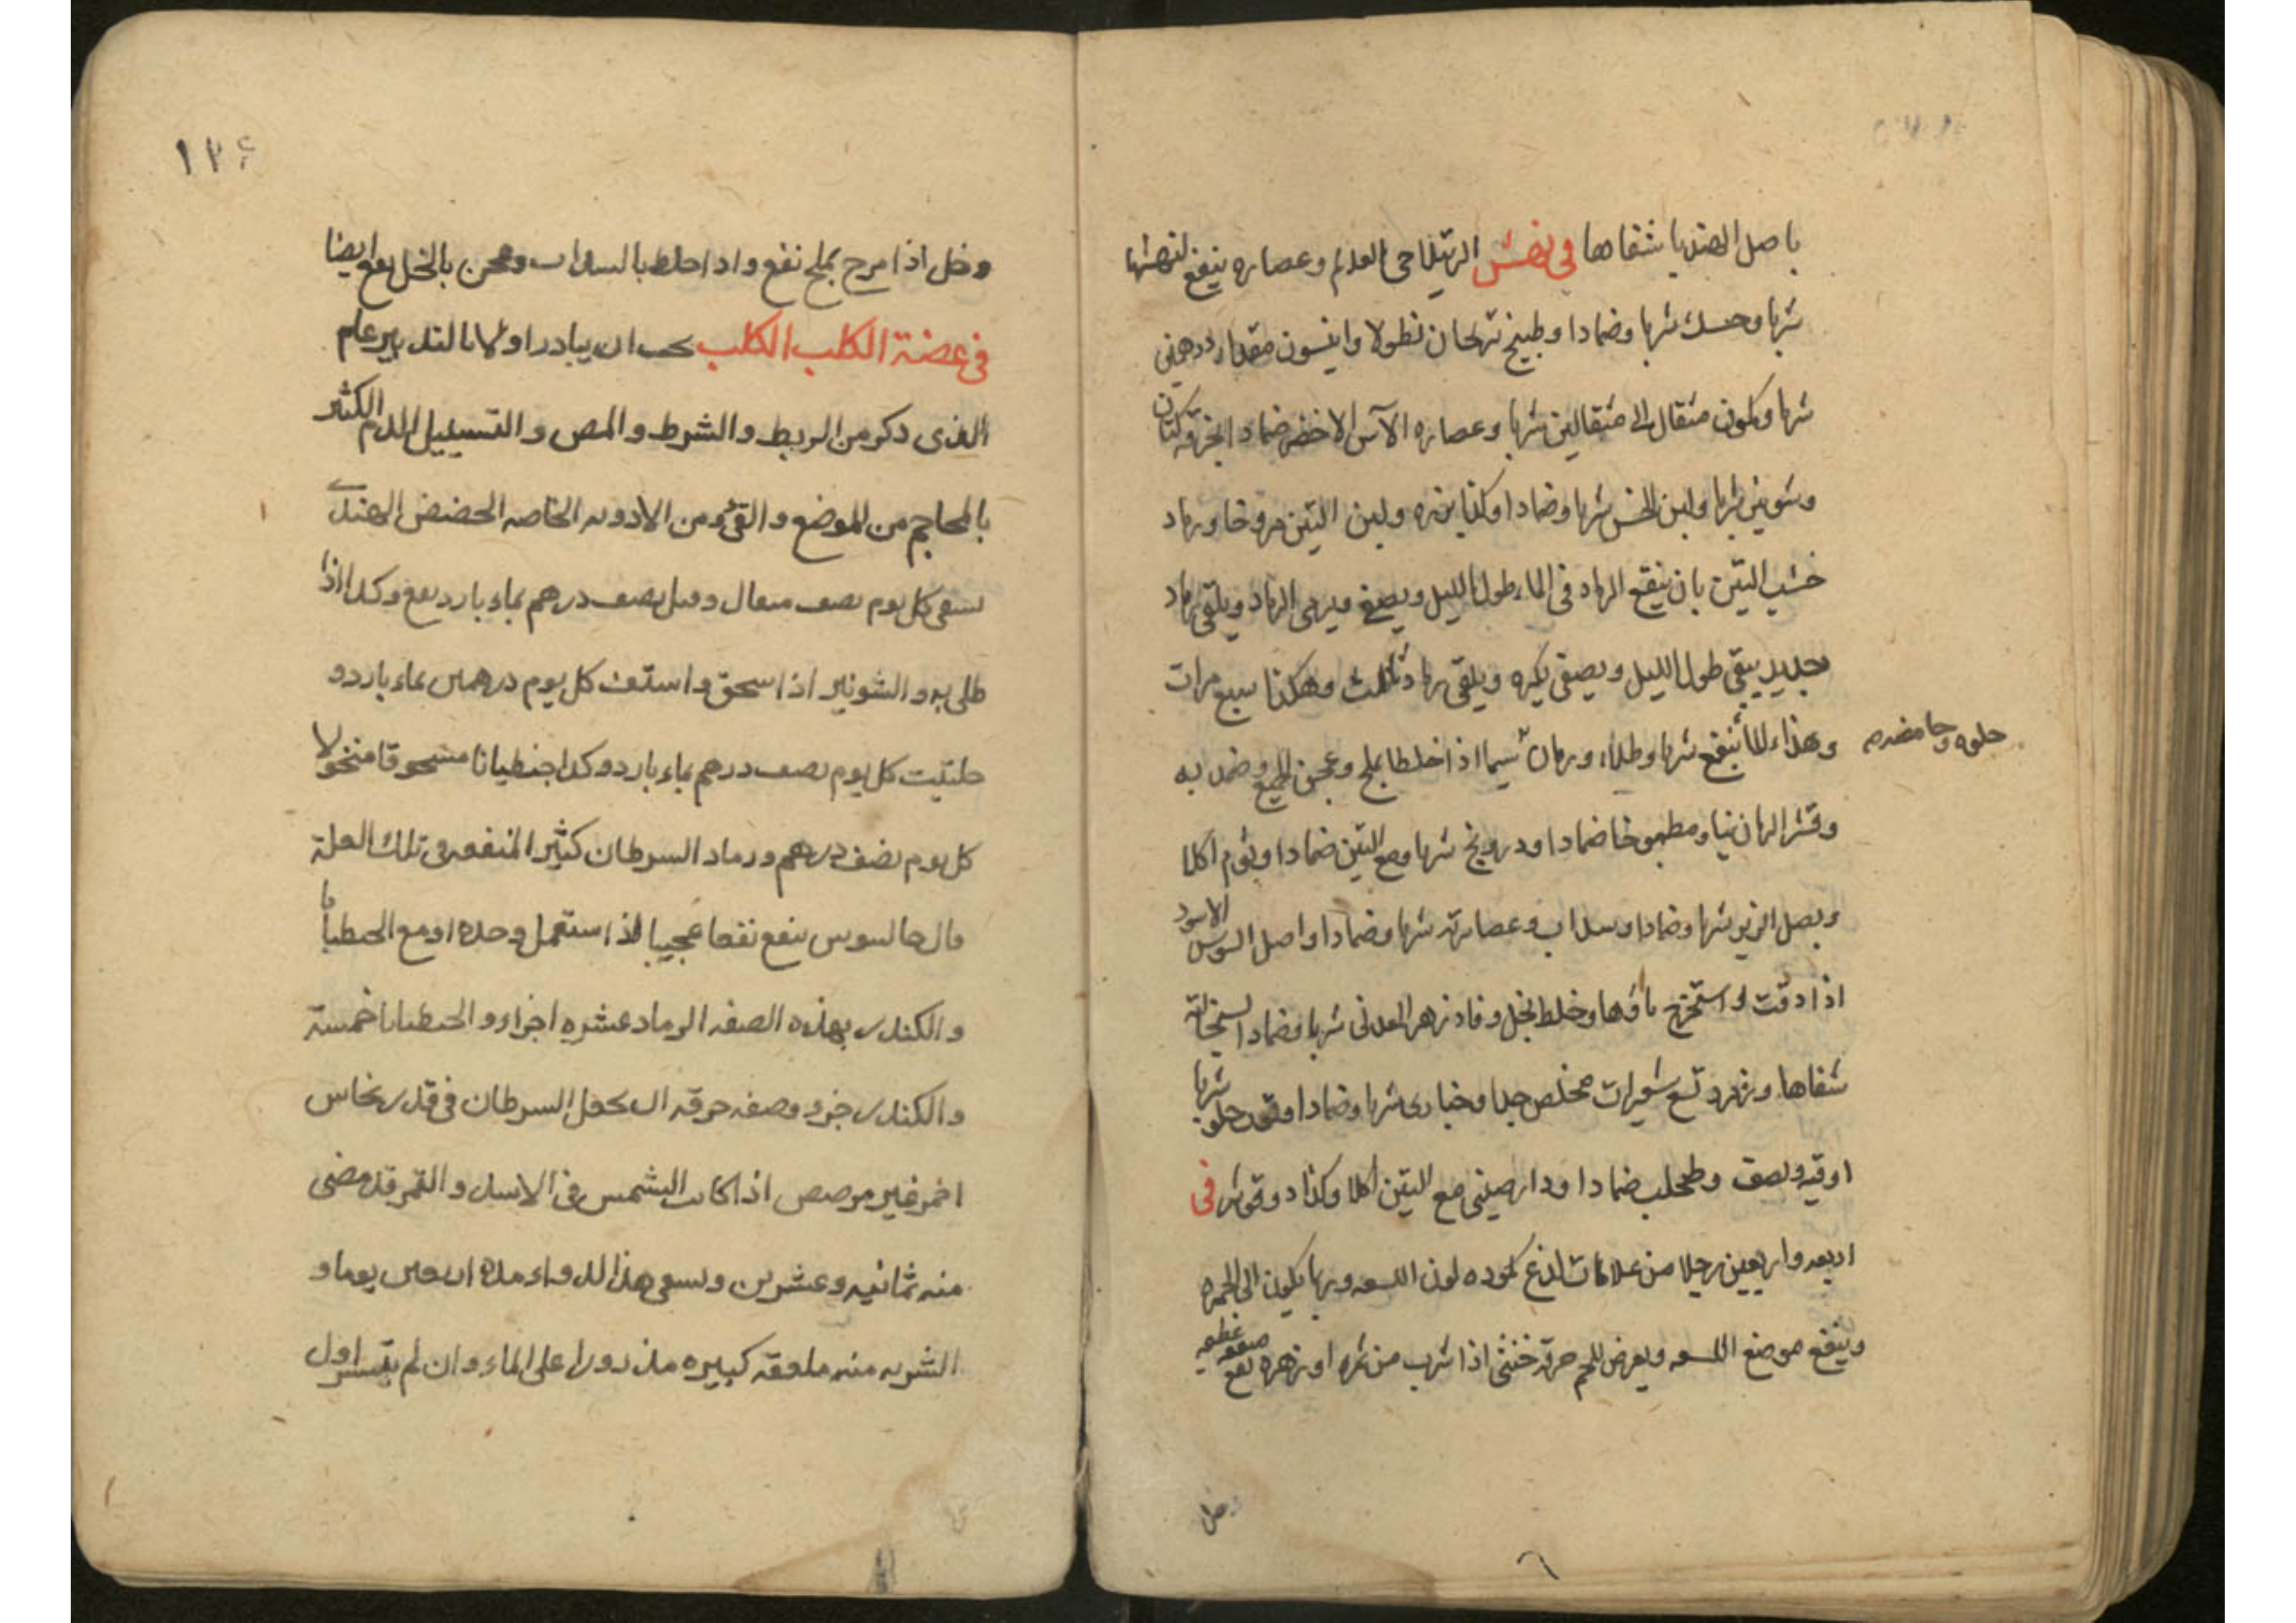 باصل الهندبا شفاها فى نهش الرتيلا حى العالم وعصاره ينفع لنهشها
شربا وحسك شربا وضمادا وطبيخ نرنجان نطولا وانيسون مقدار درهمين
شربا وكمون مثقال الى مثقالين شربا وعصاره الآس الاخضر ضمادا بخرقه كتان
وشونيز شربا ولبن الخس شربا وضمادا وكذا بزره ولبن التين مروخا ورماد
خشب التين بان ينقع الرماد فى الماء طول الليل ويصفى ويرمى الرماد ويلقى رماد
جديد يبقى طول الليل ويصفى بكره ويلقى رماد ثالث وهكذا سبع مرات
وهذا الماء ينفع شربا وطلاء ورمان سيما اذا خلطا بملح وعجن الجميع وضمد به
حلوه وحامضه
وقشر الرمان نيا ومطبوخا ضمادا ودرونج شربا ومع التين ضمادا وثوم اكلا
وبصل الزيز شربا وضمادا وسداب وعصارته شربا وضمادا واصل السوس الاسود
اذا دقت واستخرج ماؤها وخلط بخل وفادزهر المعدنى شربا وضمادا لسخالته
شفاها وزمرد تسع شعيرات مخلص جدا وخبازى شربا وضمادا وقوه حلوه شربا
اوقيه ونصف وطحلب ضمادا ودارصينى مع التين اكلا وكذا دوقو شر فى
اربعه واربعين رجلا من علامات لذع كموده لون اللسعه وربما يكون الى الحمره
وينفع موضع اللسعه ويعرض للجم حرقه خنثى اذا شرب من ثمره او زهره نفع منفعه عظيمه
١٢۶
وخل اذا مرج بملح نفع واذا خلط بالسداب وعجن بالخل نفع ايضا
فى عضة الكلب الكلب يجب ان يبادر اولا بالتدبير عام
الذى ذكر من الربط والشرط والمص والتسييل الدم الكثير
بالمحاجم من الموضع والقئ ومن الادويه الخاصه الحضض الهندى
يسقى كل يوم نصف مثقال وقيل نصف درهم بماء بارد نفع وكذا اذا
طلى به والشونيز اذا سحق واستف كل يوم درهمين بماء بارد و
حلتيت كل يوم نصف درهم بماء بارد وكذا جنطيانا مسحوقا منخولا
كل يوم نصف درهم ورماد السرطان كثير المنفعه فى تلك العلة
قال جالينوس ينفع نفعا عجيبا اذا استعمل وحده او مع الجنطيانا
والكندر بهذه الصفه الرماد عشره اجزاء والجنطيانا خمسة
والكندر جزو وصفه حرقه ان يجعل السرطان فى قدر نحاس
احمر غير مرصص اذا كانت الشمس فى الاسد والقمر قد مضى
منه ثمانيه وعشرين ويسقى هذا الدواء مده اربعين يوما و
الشربه منه ملعقه كبيره مذرورا على الماء وان لم يتيسر اول